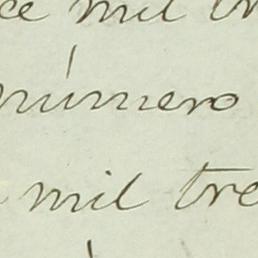 ce mil tr
número
mil tre